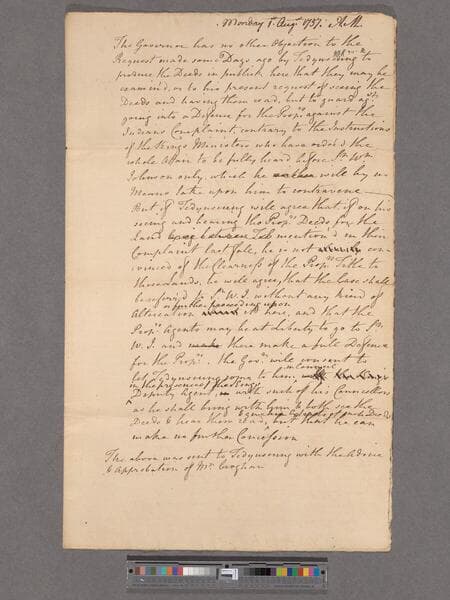 Monday 1. Augt 1757. A.M.
The Governor has no other Objection to the
Request made some Days ago by Tedyuscung to
produce the Deeds in publick here that they may be
examin'd, or to his present request of seeing the
Deeds and having them read, but to guard agt
going into a Defence for the Propr against the
Indians Complaint, contrary to the Instructions
of the Kings Ministers who have order'd the
whole Affair to be fully heard before Sr Wm
Johnson only, which he will by no
Means take upon him to contravene
But if Tedyuscung will agree that if on his
seeing and hearing the Proprs Deeds for the
Land mention'd in their
Complaint last fall, he is not con
vinced of the Clearness of the Proprs Title to
those Lands, he will agree, that the Case shall
be referr'd to Sr W. J. without any kind of
or further proceeding upon
Altercation it here, and that the
Proprs Agents may be at Liberty to go to Sr
W. J. and there make a full Defence
for the Proprs. The Govr will consent to
let Tedyuscung come to him in Council
in the presence of the Kings
Deputy Agent, with such of his Councellors
as he shall bring with him & both see the
Deeds & hear them read, but that he can
make no further Concession
The above was sent to Tedyuscung with the Advice
& Approbation of Mr Croghan